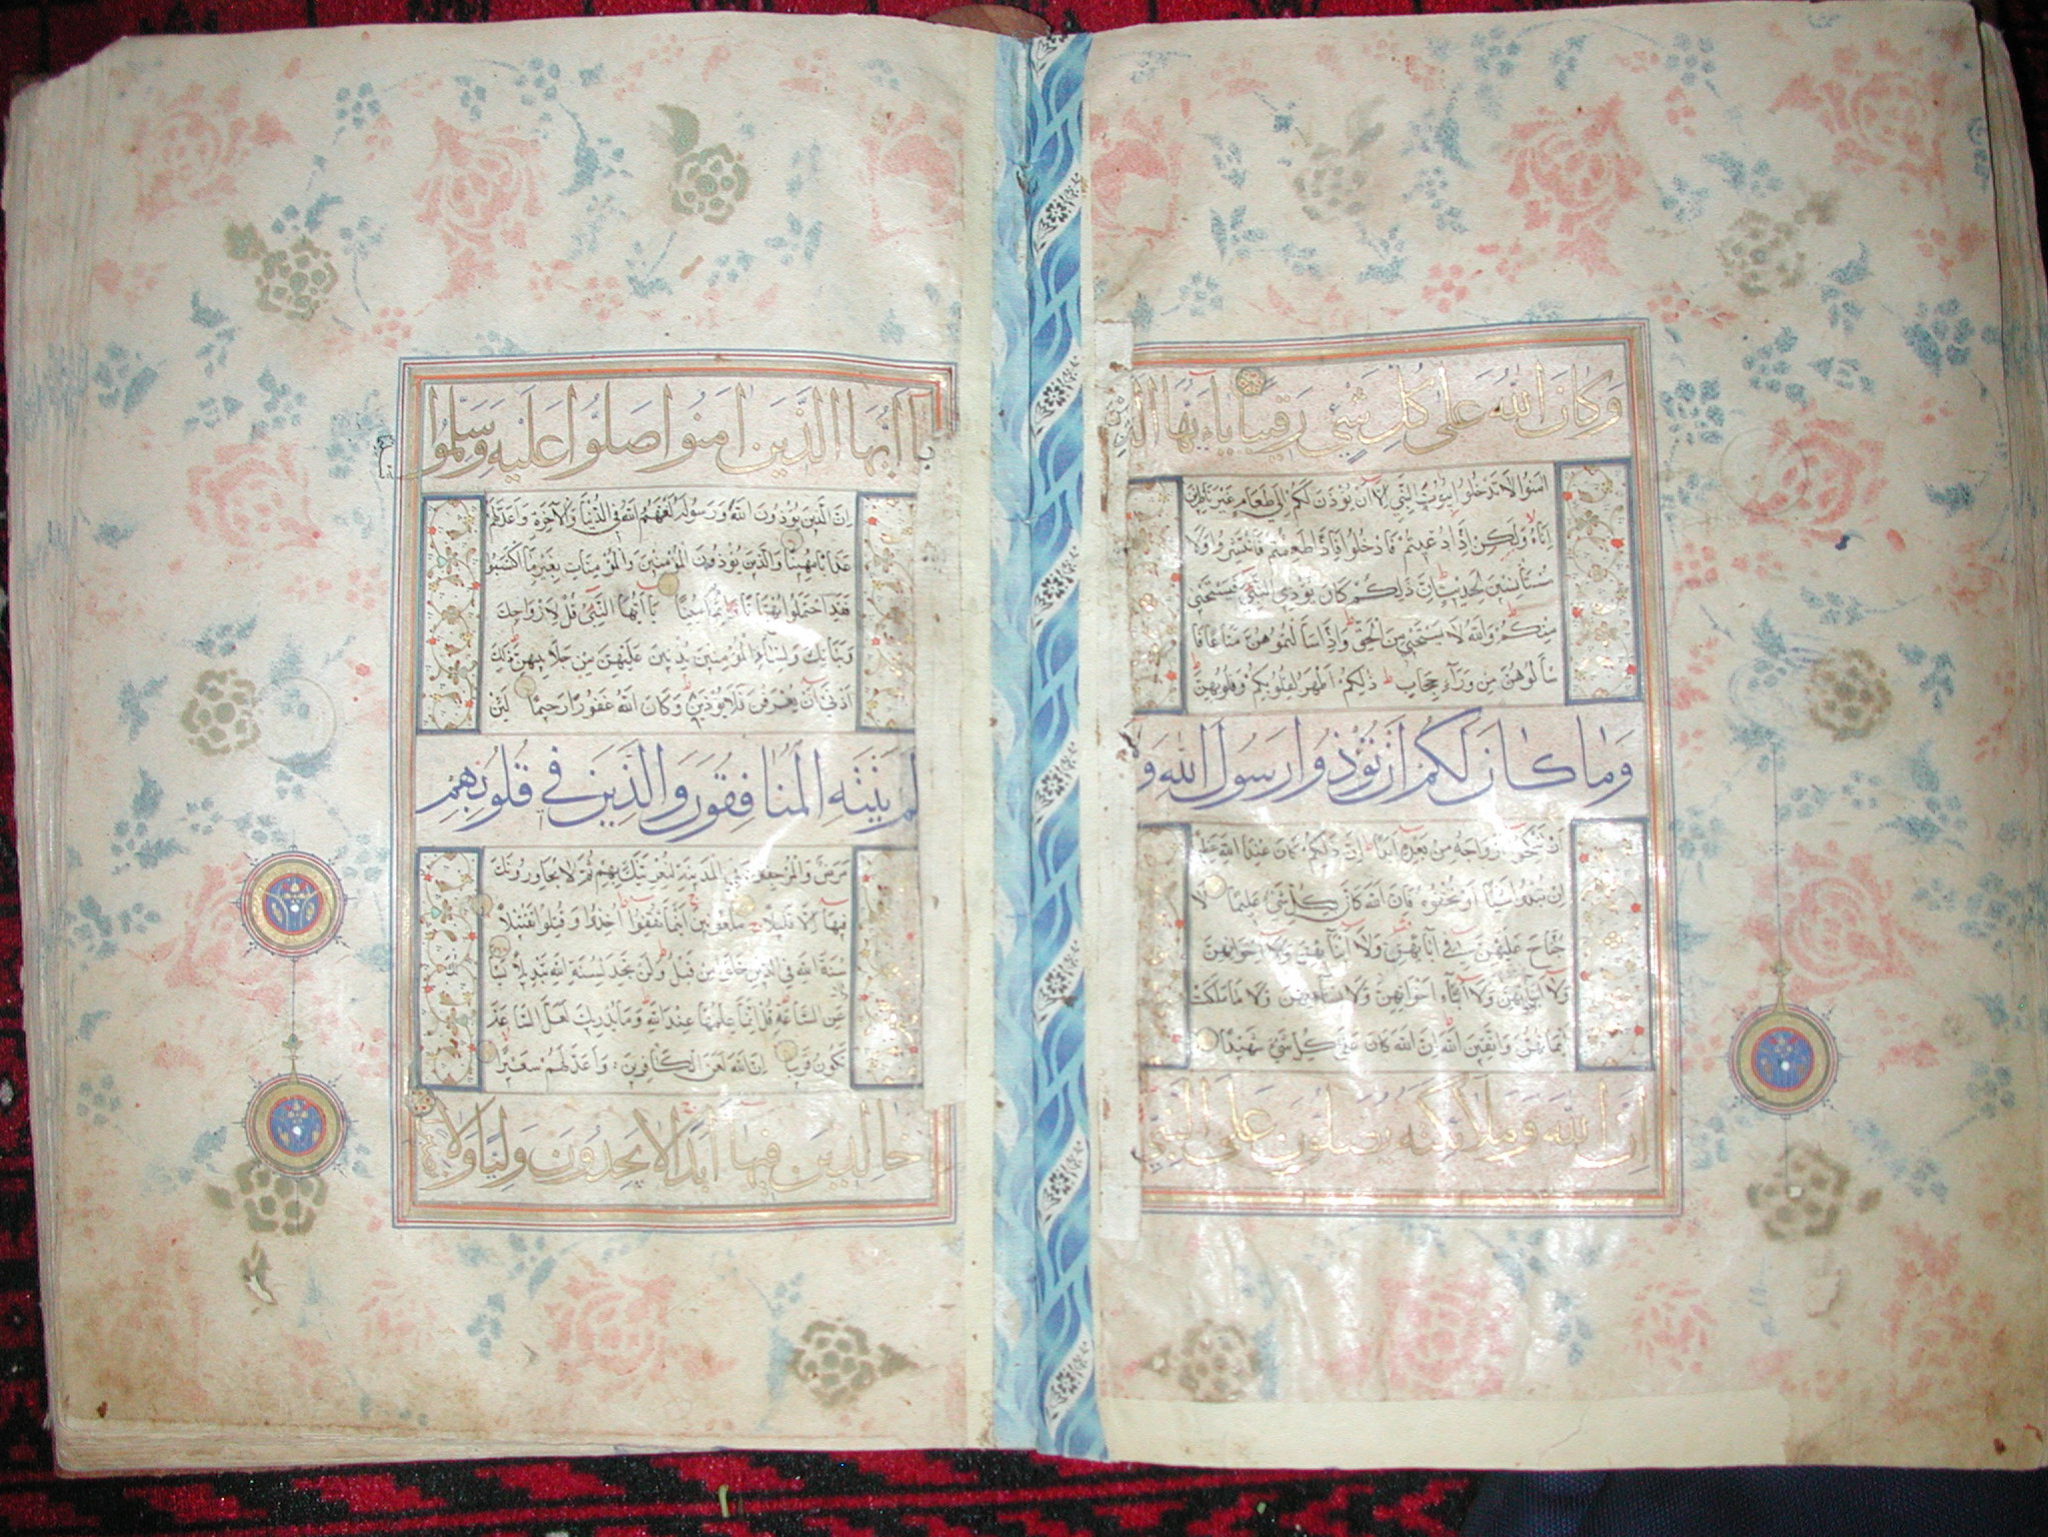 وَكَانَ اللّٰهُ عَلٰى كُلِّ شَيْءٍ رَقِيبًا يَاءَيُّهَا الَّذِينَ
اٰمَنُوا لَا تَدْخُلُوا بُيُوتَ النَّبِيِّ اِلَّا اَنْ يُؤْذَنَ لَكُمْ اِلٰى طَعَامٍ غَيْرَ نَاظِرِينَ
اِنَاهُ وَلٰكِنْ اِذَا دُعِيتُمْ فَادْخُلُوا فَاِذَا طَعِمْتُمْ فَانْتَشِرُوا وَلَا
مُسْتَأْنِسِينَ لِحَدِيثٍ اِنَّ ذٰلِكُمْ كَانَ يُؤْذِي النَّبِيَّ فَيَسْتَحْيِي
مِنْكُمْ وَاللّٰهُ لَا يَسْتَحْيِي مِنَ الْحَقِّ وَاِذَا سَاَلْتُمُوهُنَّ مَتَاعًا فَا
سْاَلُوهُنَّ مِنْ وَرَآءِ حِجَابٍ ذٰلِكُمْ اَطْهَرُ لِقُلُوبِكُمْ وَقُلُوبِهِنَّ
وَمَا كَانَ لَكُمْ اَنْ تُؤْذُوا رَسُولَ اللّٰهِ وَلَا
اَنْ تَنْكِحُوا اَزْوَاجَهُ مِنْ بَعْدِهِ اَبَدًا اِنَّ ذٰلِكُمْ كَانَ عِنْدَ اللّٰهِ عَظِيمًا
اِنْ تُبْدُوا شَيْئًا اَوْ تُخْفُوهُ فَاِنَّ اللّٰهَ كَانَ بِكُلِّ شَيْءٍ عَلِيمًا لَا
جُنَاحَ عَلَيْهِنَّ فِي اٰبَآئِهِنَّ وَلَا اَبْنَآئِهِنَّ وَلَا اِخْوَانِهِنَّ
وَلَا اَبْنَآءِ اِخْوَانِهِنَّ وَلَا نِسَآئِهِنَّ وَلَا مَا مَلَكَتْ
اَيْمَانُهُنَّ وَاتَّقِينَ اللّٰهَ اِنَّ اللّٰهَ كَانَ عَلٰى كُلِّ شَيْءٍ شَهِيدًا
اِنَّ اللّٰهَ وَمَلَائِكَتَهُ يُصَلُّونَ عَلَى النَّبِيِّ
يَا اَيُّهَا الَّذِينَ اٰمَنُوا صَلُّوا عَلَيْهِ وَسَلِّمُوا
اِنَّ الَّذِينَ يُؤْذُونَ اللّٰهَ وَرَسُولَهُ لَعَنَهُمُ اللّٰهُ فِي الدُّنْيَا وَالْاٰخِرَةِ وَاَعَدَّ لَهُمْ
عَذَابًا مُهِينًا وَالَّذِينَ يُؤْذُونَ الْمُؤْمِنِينَ وَالْمُؤْمِنَاتِ بِغَيْرِ مَا اكْتَسَبُوا
فَقَدِ احْتَمَلُوا بُهْتَانًا وَاِثْمًا مُبِينًا يَا اَيُّهَا النَّبِيُّ قُلْ لِاَزْوَاجِكَ
وَبَنَاتِكَ وَنِسَآءِ الْمُؤْمِنِينَ يُدْنِينَ عَلَيْهِنَّ مِنْ جَلَابِيبِهِنَّ ذٰلِكَ
اَدْنٰى اَنْ يُعْرَفْنَ فَلَا يُؤْذَيْنَ وَكَانَ اللّٰهُ غَفُورًا رَحِيمًا لَئِنْ
لَمْ يَنْتَهِ الْمُنَافِقُونَ وَالَّذِينَ فِي قُلُوبِهِمْ
مَرَضٌ وَالْمُرْجِفُونَ فِي الْمَدِينَةِ لَنُغْرِيَنَّكَ بِهِمْ ثُمَّ لَا يُجَاوِرُونَكَ
فِيهَا اِلَّا قَلِيلًا مَلْعُونِينَ اَيْنَمَا ثُقِفُوا اُخِذُوا وَقُتِّلُوا تَقْتِيلًا
سُنَّةَ اللّٰهِ فِي الَّذِينَ خَلَوْا مِنْ قَبْلُ وَلَنْ تَجِدَ لِسُنَّةِ اللّٰهِ تَبْدِيلًا
عَنِ السَّاعَةِ قُلْ اِنَّمَا عِلْمُهَا عِنْدَ اللّٰهِ وَمَا يُدْرِيكَ لَعَلَّ السَّاعَةَ
تَكُونُ قَرِيبًا اِنَّ اللّٰهَ لَعَنَ الْكَافِرِينَ وَاَعَدَّ لَهُمْ سَعِيرًا
خَالِدِينَ فِيهَا اَبَدًا لَا يَجِدُونَ وَلِيًّا وَلَا